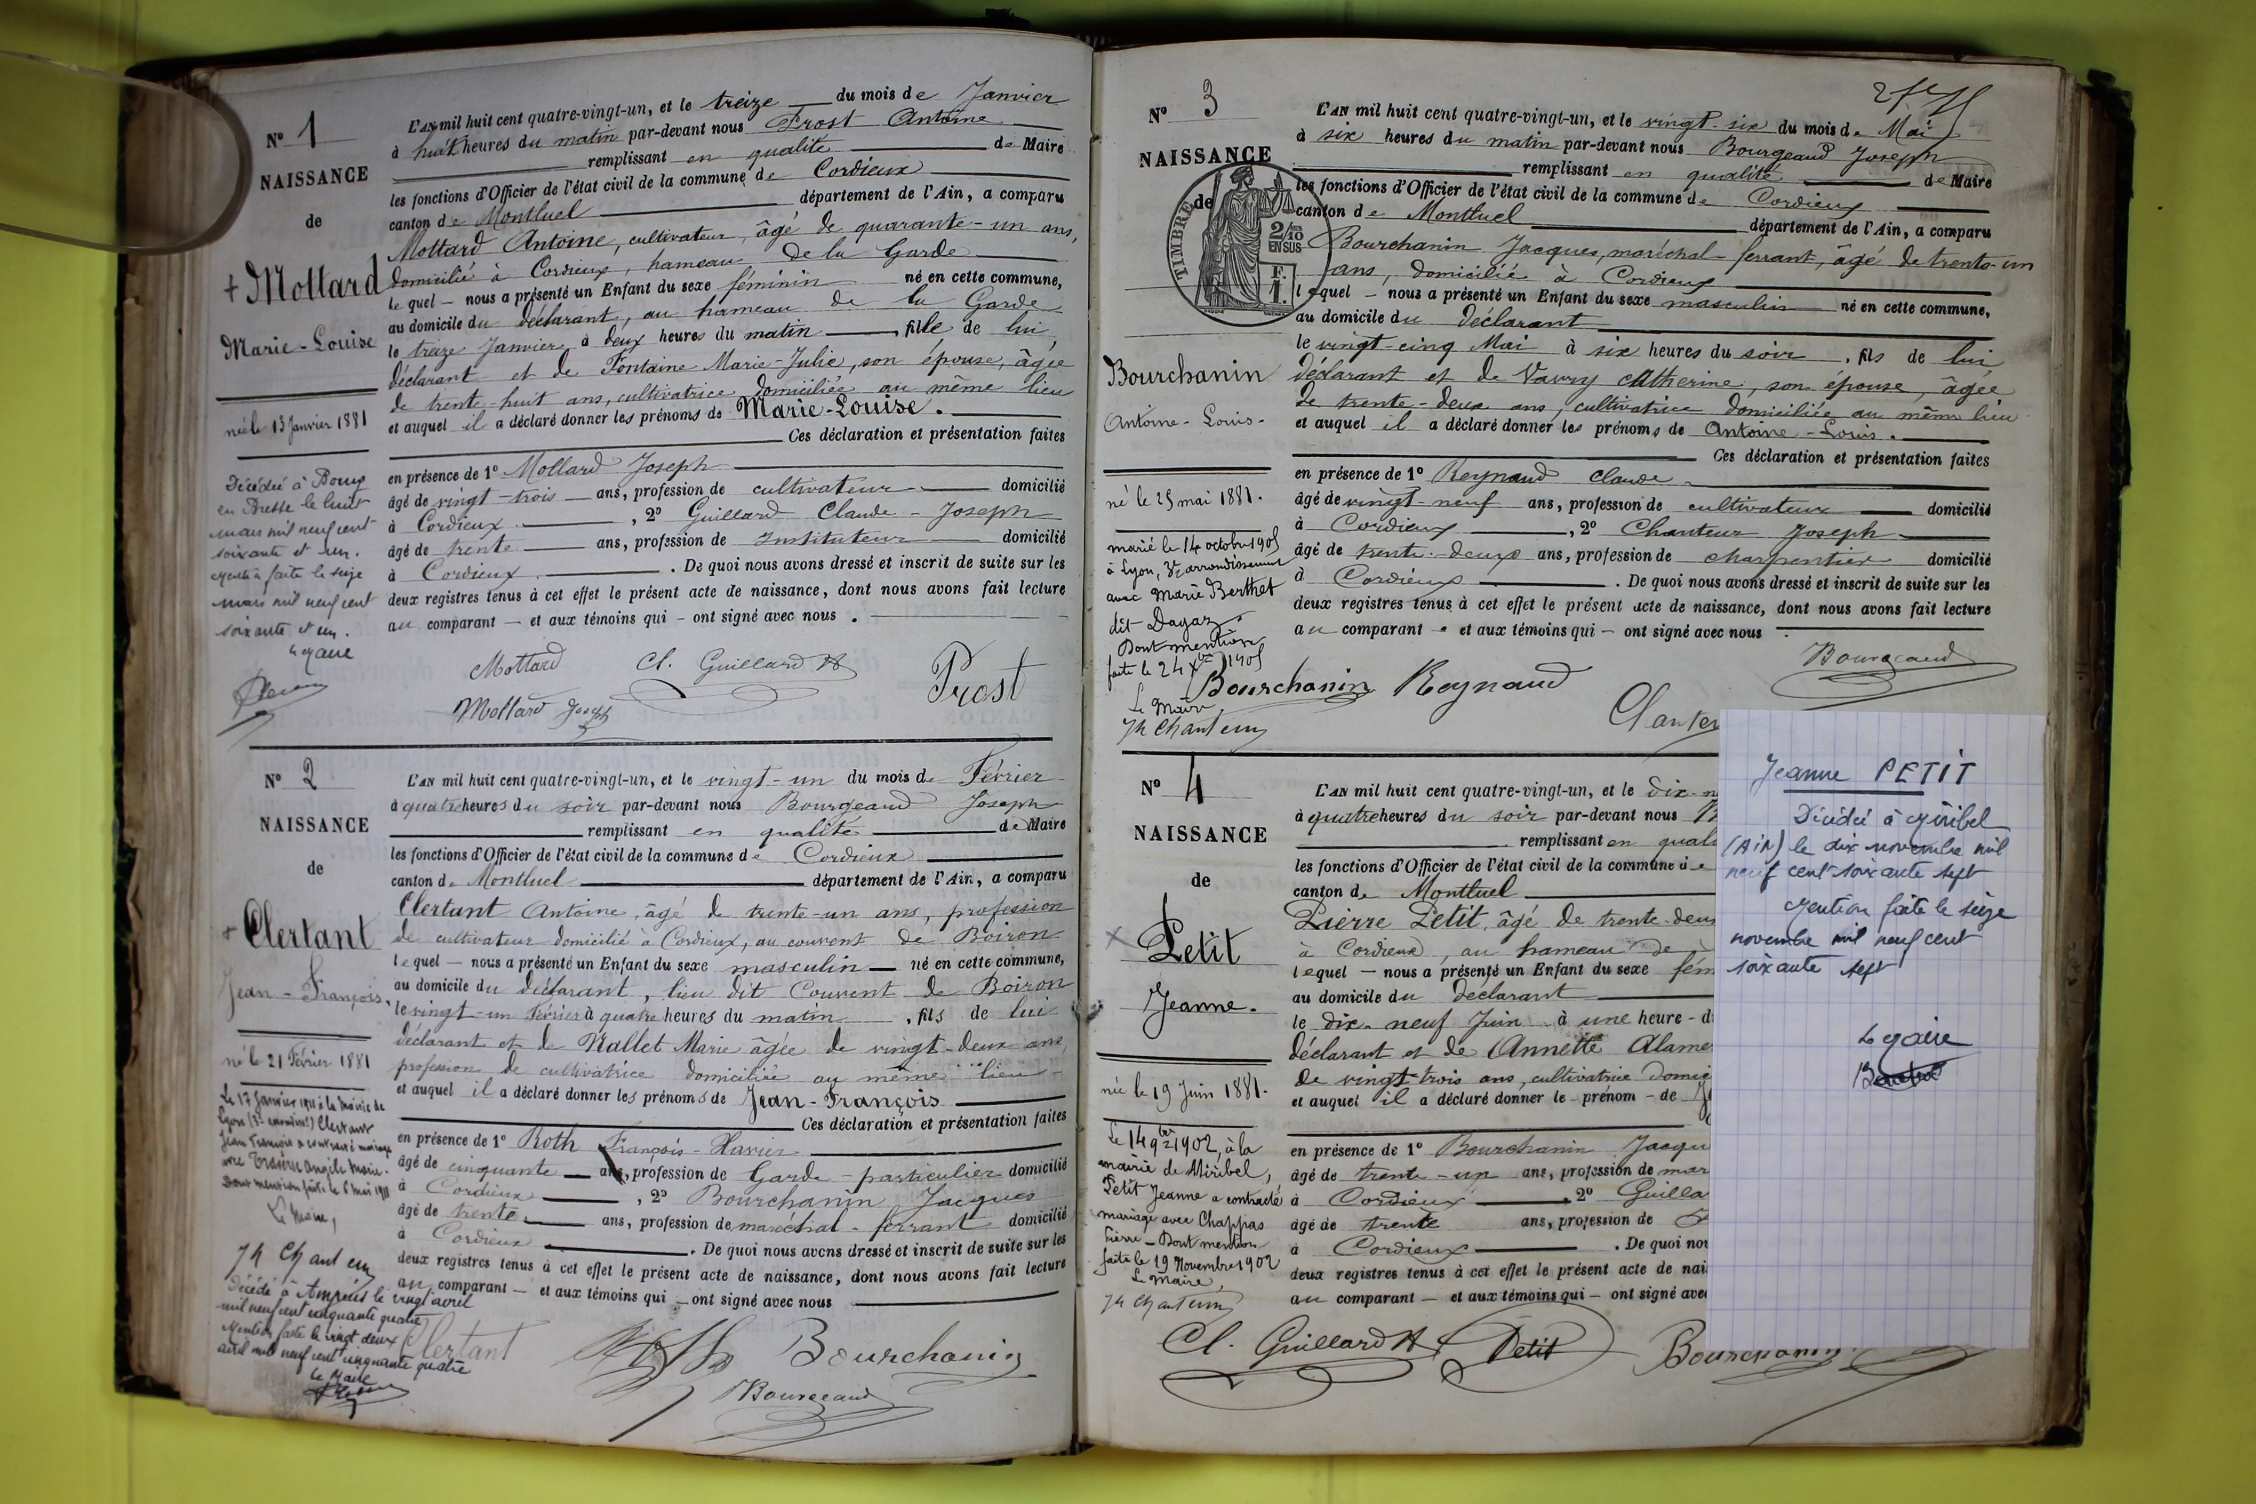 N° 1
NAISSANCE
de
+ Mottard
Marie-Louise
née le 13 Janvier 1881
Décédée à Bourg
en Bresse le huit
mars mil neuf cent
soixante et un.
Mention faite le seize
mars mil neuf cent
soixante et un.
Le Maire
L'AN mil huit cent quatre-vingt-un, et le treize du mois de Janvier
à huit heures du matin par-devant nous Prost Antoine
remplissant en qualité de Maire
les fonctions d'Officier de l'état civil de la commune de Cordieux
canton de Montluel département de l'Ain, a comparu
Mottard Antoine, cultivateur, âgé de quarante-un ans,
domicilié à Cordieux, hameau de la Garde
lequel — nous a présenté un Enfant du sexe féminin né en cette commune,
au domicile du déclarant, au hameau de la Garde
le treize Janvier à deux heures du matin, fille de lui
déclarant et de Fontaine Marie-Julie, son épouse, âgée
de trente-huit ans, cultivatrice domiciliée au même lieu
et auquel il a déclaré donner les prénoms de Marie-Louise.
Ces déclaration et présentation faites
en présence de 1° Mollard Joseph
âgé de vingt-trois ans, profession de cultivateur domicilié
à Cordieux, 2° Guillard Claude-Joseph
âgé de trente ans, profession de Instituteur domicilié
à Cordieux. De quoi nous avons dressé et inscrit de suite sur les
deux registres tenus à cet effet le présent acte de naissance, dont nous avons fait lecture
au comparant — et aux témoins qui — ont signé avec nous.
Mottard Cl. Guillard Prost
Mollard Joseph
N° 2
NAISSANCE
de
+ Clertant
Jean-François,
né le 21 Février 1881
Le 17 Janvier 1911 à la Mairie de
Lyon Clertant
Jean François a contracté mariage
avec Marie.
Dont mention faite le 6 mai 1911
Le Maire,
Jh Chanteur
Décédé à le vingt avril
mil neuf cent cinquante quatre
Mention faite le vingt deux
avril mil neuf cent cinquante quatre
Le Maire
L'AN mil huit cent quatre-vingt-un, et le vingt-un du mois de Février
à quatre heures du soir par-devant nous Bourgeaud Joseph
remplissant en qualité de Maire
les fonctions d'Officier de l'état civil de la commune de Cordieux
canton de Montluel département de l'Ain, a comparu
Clertant Antoine, âgé de trente-un ans, profession
de cultivateur domicilié à Cordieux, au couvent de Boiron
lequel — nous a présenté un Enfant du sexe masculin né en cette commune,
au domicile du déclarant, lieu dit Couvent de Boiron
le vingt-un Février à quatre heures du matin, fils de lui
déclarant et de Nallet Marie âgée de vingt-deux ans,
profession de cultivatrice domiciliée au même lieu
et auquel il a déclaré donner les prénoms de Jean-François
Ces déclaration et présentation faites
en présence de 1° Roth François-Xavier
âgé de cinquante ans, profession de Garde-particulier domicilié
à Cordieux, 2° Bourchanin Jacques
âgé de trente ans, profession de maréchal-ferrant domicilié
à Cordieux. De quoi nous avons dressé et inscrit de suite sur les
deux registres tenus à cet effet le présent acte de naissance, dont nous avons fait lecture
au comparant — et aux témoins qui — ont signé avec nous
Clertant Roth Bourchanin
Bourgeaud
N° 3
NAISSANCE
de
TIMBRE
2/10
EN SUS
F.
1.
Bourchanin
Antoine-Louis.
né le 25 mai 1881.
marié le 14 octobre 1905
à Lyon, 3e arrondissement
avec Marie Berthet
dit Dagaz.
Dont mention
faite le 24 Xbre 1905
Le Maire
Jh Chanteur
L'AN mil huit cent quatre-vingt-un, et le vingt-six du mois de Mai
à six heures du matin par-devant nous Bourgeaud Joseph
remplissant en qualité de Maire
les fonctions d'Officier de l'état civil de la commune de Cordieux
canton de Montluel département de l'Ain, a comparu
Bourchanin Jacques, maréchal-ferrant, âgé de trente-un
ans, domicilié à Cordieux
lequel — nous a présenté un Enfant du sexe masculin né en cette commune,
au domicile du déclarant
le vingt-cinq Mai à six heures du soir, fils de lui
déclarant et de Vavry Catherine, son épouse, âgée
de trente-deux ans, cultivatrice domiciliée au même lieu
et auquel il a déclaré donner les prénoms de Antoine-Louis.
Ces déclaration et présentation faites
en présence de 1° Reynaud Claude
âgé de vingt-neuf ans, profession de cultivateur domicilié
à Cordieux, 2° Chanteur Joseph
âgé de trente-deux ans, profession de charpentier domicilié
à Cordieux. De quoi nous avons dressé et inscrit de suite sur les
deux registres tenus à cet effet le présent acte de naissance, dont nous avons fait lecture
au comparant et aux témoins qui — ont signé avec nous
Bourgeaud
Bourchanin Reynaud
Chanteur
N° 4
NAISSANCE
de
Petit
Jeanne.
née le 19 Juin 1881.
Le 14 9bre 1902, à la
mairie de Miribel,
Petit Jeanne a contracté
mariage avec Chappas
Pierre — Dont mention
faite le 19 Novembre 1902
Le Maire,
Jh Chanteur
L'AN mil huit cent quatre-vingt-un, et le dix-n
à quatre heures du soir par-devant nous B
remplissant en quali
les fonctions d'Officier de l'état civil de la commune de
canton de Montluel
Pierre Petit, âgé de trente-deux
à Cordieux, au hameau de
lequel — nous a présenté un Enfant du sexe fém
au domicile du déclarant
le dix-neuf Juin à une heure d
déclarant et de Annette Alame
de vingt-trois ans, cultivatrice domic
et auquel il a déclaré donner le prénom de Je
en présence de 1° Bourchanin Jacqu
âgé de trente-un ans, profession de mar
à Cordieux, 2° Guilla
âgé de trente ans, profession de
à Cordieux. De quoi nou
deux registres tenus à cet effet le présent acte de nai
au comparant — et aux témoins qui — ont signé avec
Cl. Guillard Petit Bourchanin
Jeanne PETIT
Décédée à Miribel
(AIN) le dix novembre mil
neuf cent soixante sept
Mention faite le seize
novembre mil neuf cent
soixante sept
Le Maire